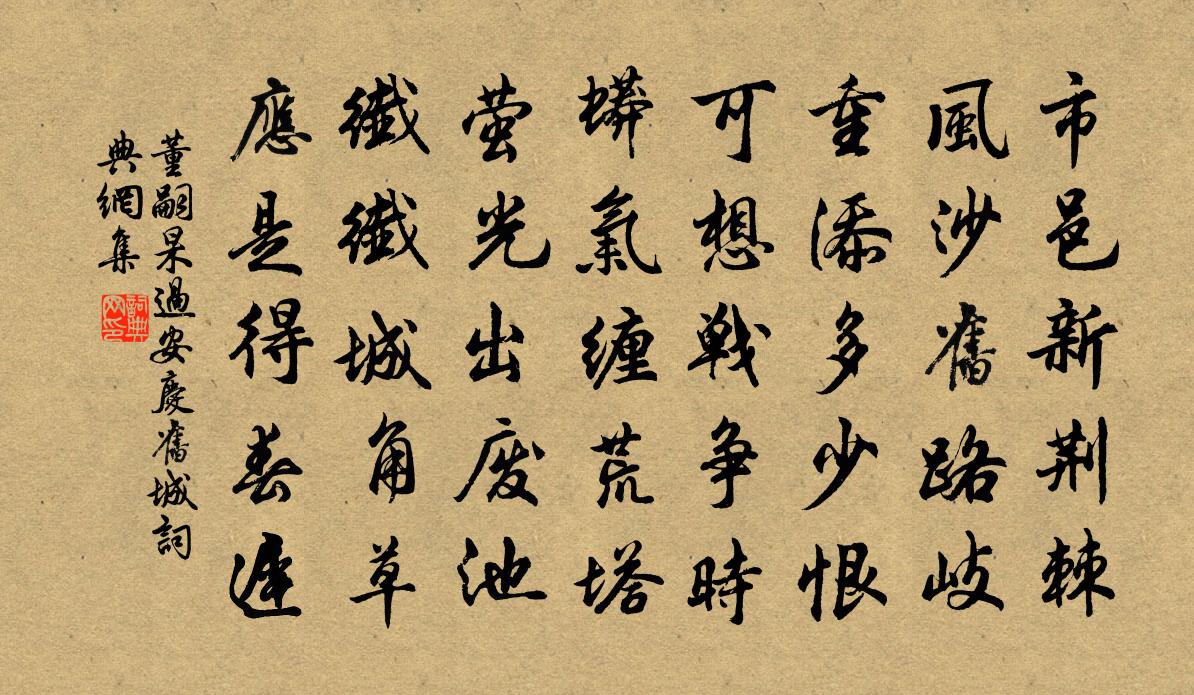 市邑新荆棘
風沙舊路岐
重添多少恨
可想戰争時
蟒氣纏荒塔
萤光出废池
纖纖城角草
應是得春遲
董嗣杲過安慶舊城詞
典網集
詞典
网印